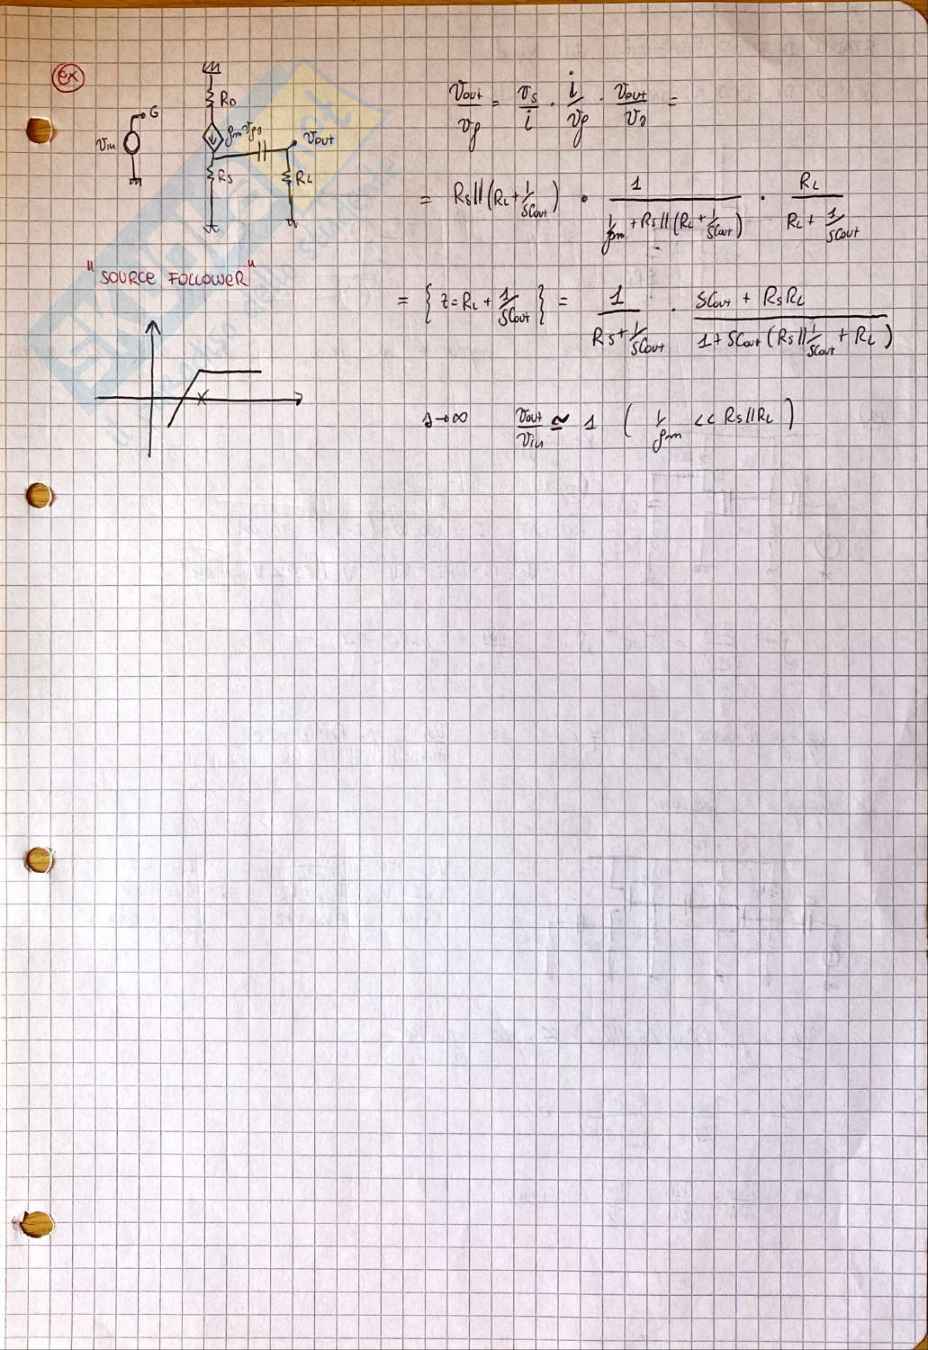 ex
R_D
G
g_m v_gs
v_in
v_out
R_S
R_L
"SOURCE FOLLOWER"
v_out/v_g = v_s/i · i/v_g · v_out/v_s =
= R_S||(R_L + 1/sC_out) · 1/(1/g_m + R_S||(R_L + 1/sC_out)) · R_L/(R_L + 1/sC_out)
= { z = R_L + 1/sC_out } = 1/(R_S + 1/sC_out) · (sC_out + R_S R_L)/(1 + sC_out (R_S||1/sC_out + R_L))
s→∞ v_out/v_in ≃ 1 ( 1/g_m << R_S//R_L )